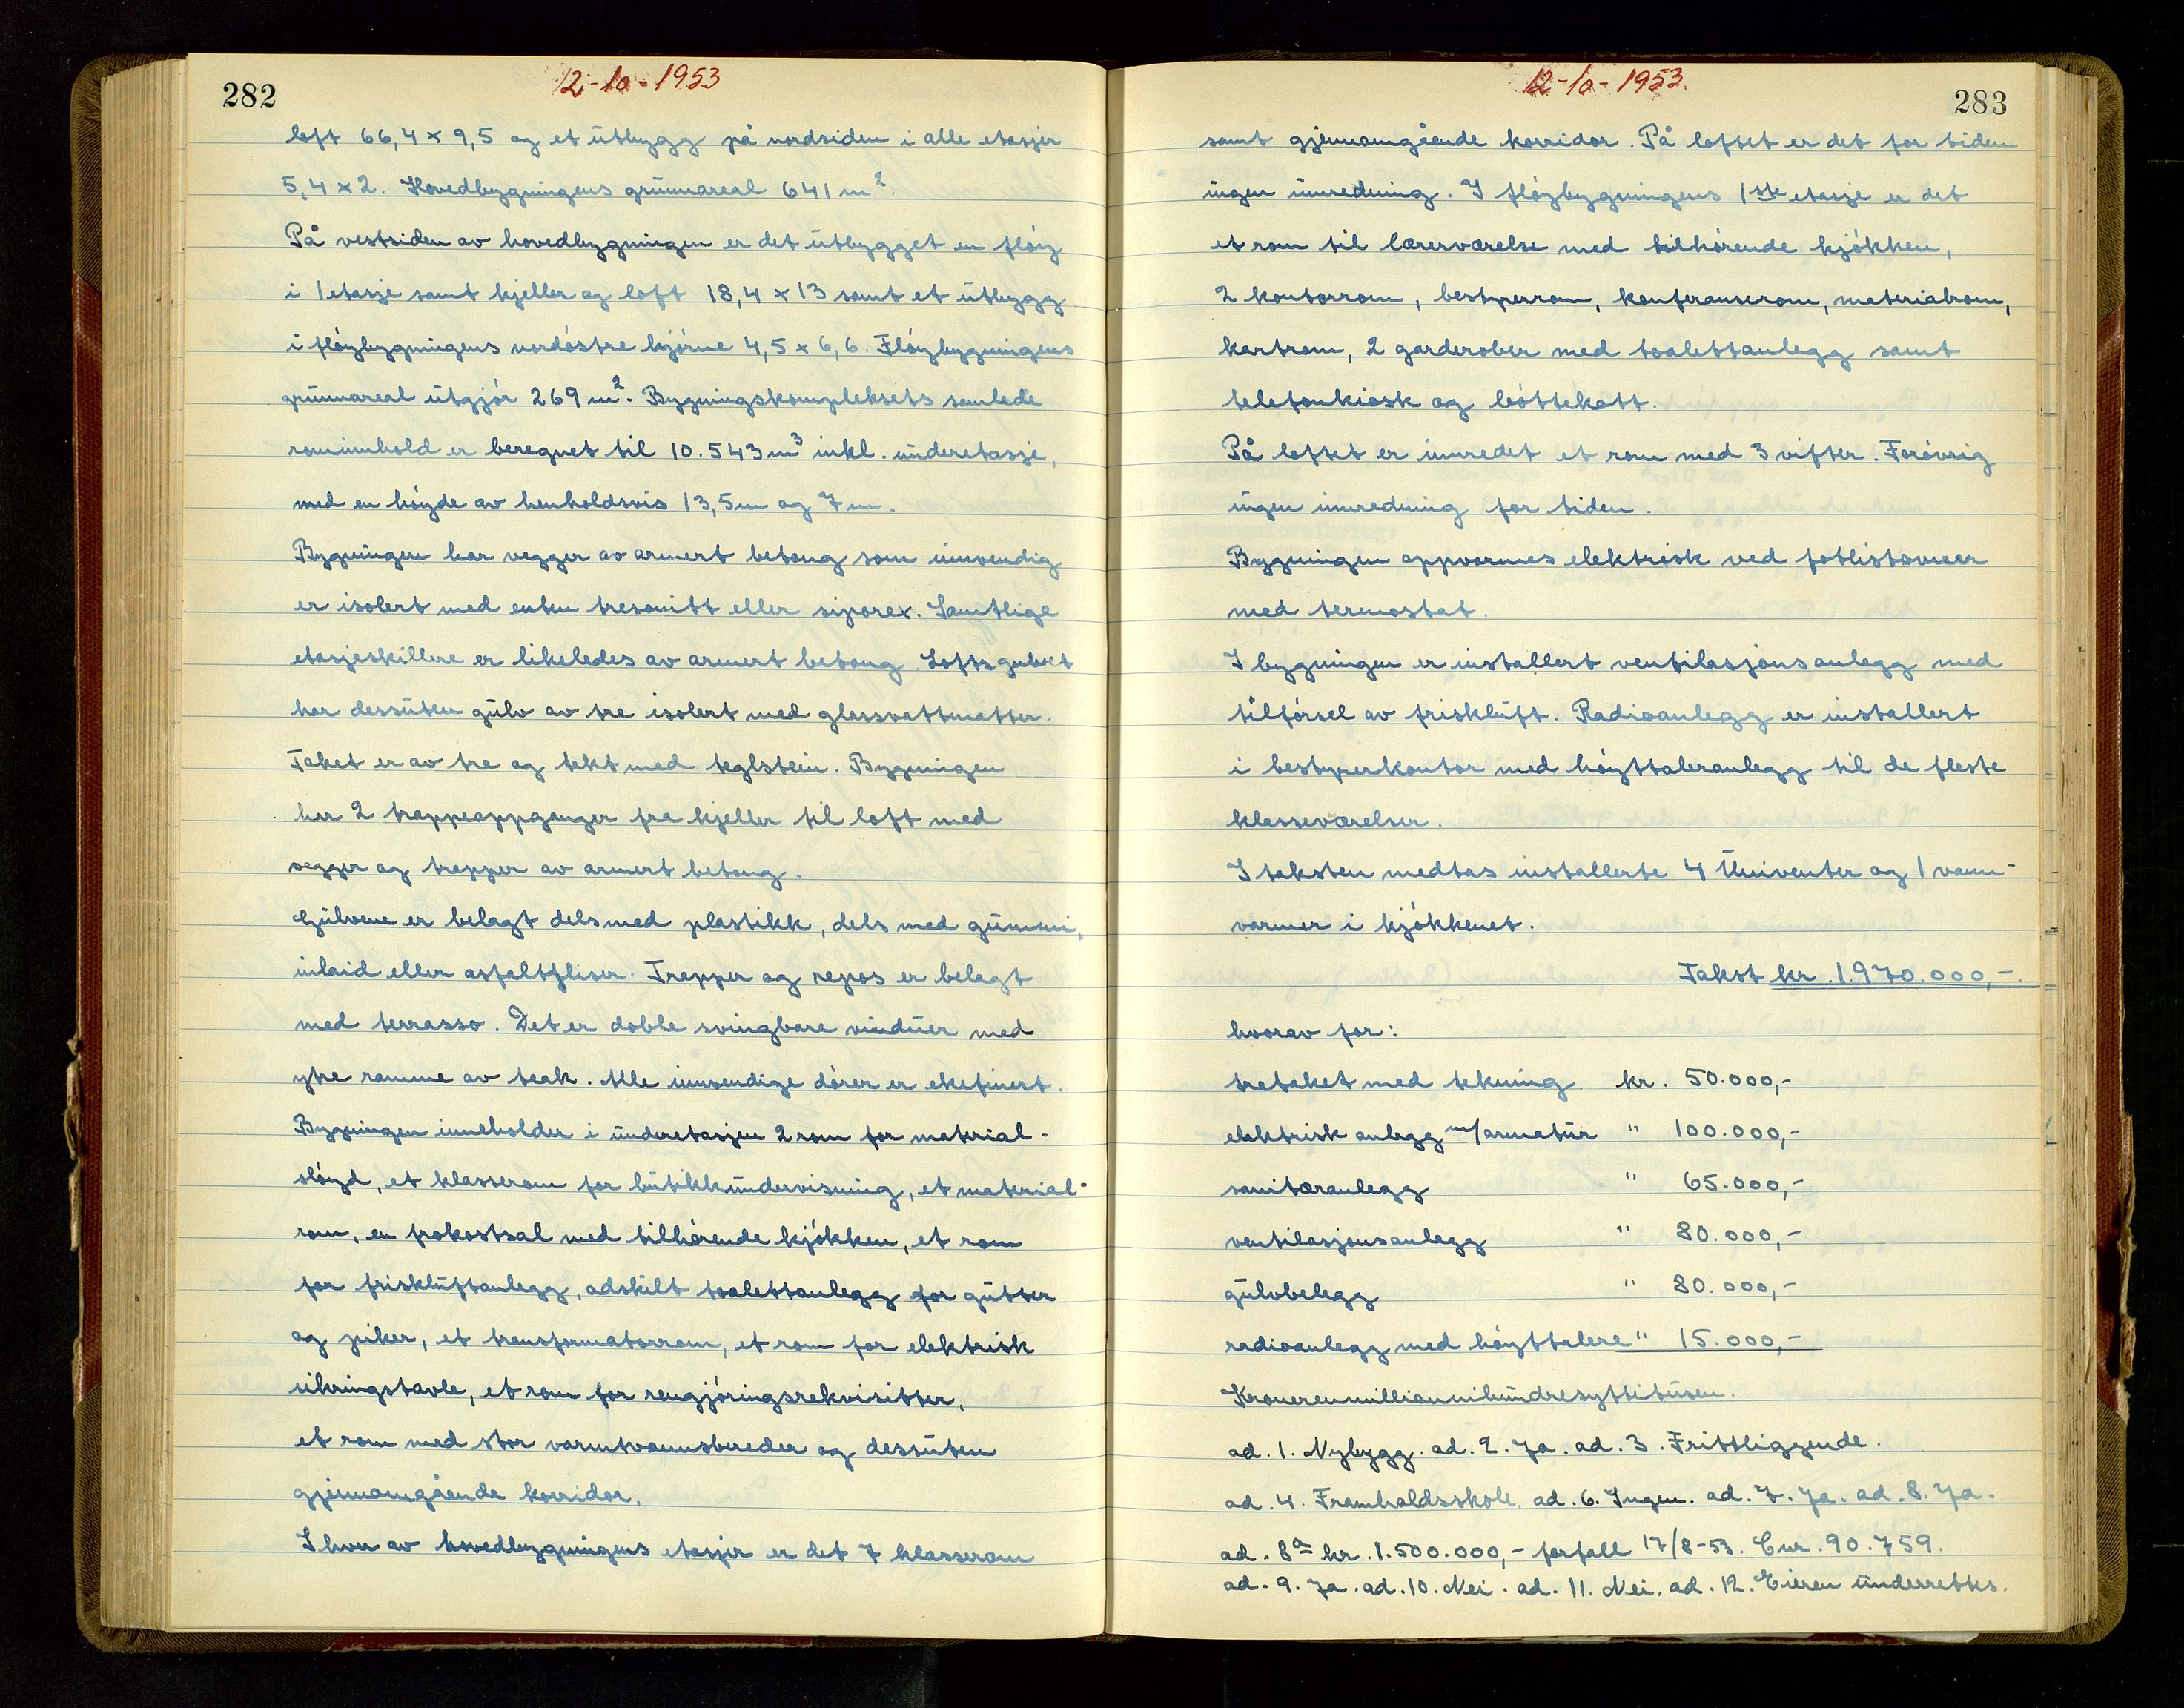 282
12-10-1953
loft 66,4 x 9,5 og et utbygg på nordsiden i alle etasjer
5,4 x 2. Hovedbygningens grunnareal 641 m².
På vestsiden av hovedbygningen er det utbygget en fløy
i 1 etasje samt kjeller og loft 18,4 x 13 samt et utbygg
i fløybygningens nordøstre hjørne 4,5 x 6,6. Fløybygningens
grunnareal utgjør 269 m². Bygningskompleksets samlede
rominnhold er beregnet til 10.543 m³ inkl. underetasje,
med en høyde av henholdsvis 13,5 m og 7 m.
Bygningen har vegger av armert betong som innvendig
er isolert med enten tresonitt eller siporex. Samtlige
etasjeskillere er likeledes av armert betong. Loftsgulvet
har dessuten gulv av tre isolert med glassvattmatter.
Taket er av tre og tekt med teglstein. Bygningen
har 2 trappeoppganger fra kjeller til loft med
vegger og trapper av armert betong.
Gulvene er belagt dels med plastikk, dels med gummi,
inlaid eller asfaltfliser. Trapper og repos er belagt
med terrasso. Det er doble svingbare vinduer med
ytre ramme av teak. Alle innvendige dører er ekefinert.
Bygningen inneholder i underetasjen 2 rom for material-
sløyd, et klasserom for butikkundervisning, et material-
rom, en frokostsal med tilhørende kjøkken, et rom
for friskluftanlegg, adskilt toalettanlegg for gutter
og piker, et transformatorrom, et rom for elektrisk
sikringstavle, et rom for rengjøringsrekvisitter,
et rom med stor varmtvannsbereder og dessuten
gjennomgående korridor.
I hver av hovedbygningens etasjer er det 7 klasserom
12-10-1953.
283
samt gjennomgående korridor. På loftet er det for tiden
ingen innredning. I fløybygningens 1ste etasje er det
et rom til lærerværelse med tilhørende kjøkken,
2 kontorrom, bestyrerrom, konferanserom, materialrom,
kartrom, 2 garderober med toalettanlegg samt
telefonkiosk og bøttekott.
På loftet er innredet et rom med 3 vifter. Forøvrig
ingen innredning for tiden.
Bygningen oppvarmes elektrisk ved fotlistovner
med termostat.
I bygningen er installert ventilasjonsanlegg med
tilførsel av friskluft. Radioanlegg er installert
i bestyrerkontor med høyttaleranlegg til de fleste
klasseværelser.
I taksten medtas installerte 4 Univenter og 1 vann-
varmer i kjøkkenet.
Takst kr. 1.970.000,-.
hvorav for:
tretaket med tekning kr. 50.000,-
elektrisk anlegg m/armatur " 100.000,-
sanitæranlegg " 65.000,-
ventilasjonsanlegg " 80.000,-
gulvbelegg " 80.000,-
radioanlegg med høyttalere " 15.000,-
Kronerenmillionnihundresyttitusen.
ad. 1. Nybygg. ad. 2. Ja. ad. 3. Frittliggende.
ad. 4. Framhaldsskole. ad. 6. Ingen. ad. 7. Ja. ad. 8. Ja.
ad. 8a kr. 1.500.000,- forfall 17/8-53. Cur. 90.759.
ad. 9. Ja. ad. 10. Nei. ad. 11. Nei. ad. 12. Eieren underrettes.